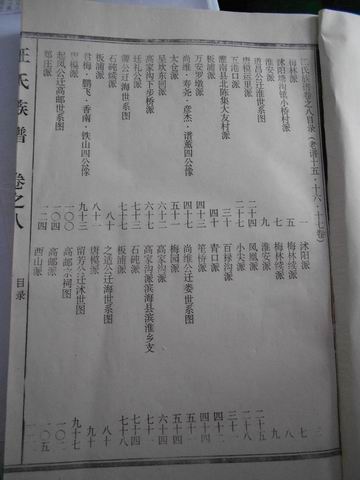 氏族谱卷之八目录（老谱十五·十六·十七卷）
梅林派 一
沭阳塔沟镇小桥村派 五
淮安派 七
道昌公迁淮世系图 九
唐模运里派 二十四
五港口派 二十七
灌南县北陈集大友村派 三十
万安罗墩派 四十
尚维·寿尧·彦杰·谱薰四公像
太仓派 五十一
星坎东园派
高家沟下步桥派 六十二
廷礼公像 六十三
公迁海世系图 七十三
石砘续派 七十七
板浦派 八十一
君梅·鹏飞·香南·铁山四公像
唐模派 九十三
起凤公迁高邮世系图 一〇〇
郑庄派 一二四
沭阳派 三
梅林续派 七
梅林续派 八
淮安派 九
凤凰派 二十五
小尖派 二十八
百禄沟派 三十一
青口派 四十二
笙恬派 四十四
尚维公迁娄世系图 五十一
梅园派 五十四
高家沟派滨海县滨淮乡支 六十四
石砘派 七十一
板浦派 七十八
之适公迁海世系图
唐模派 九十
留芳公迁沭世系图 九十七
高邮宗祠图 一〇二
高邮派 一〇五
西山派
氏族谱 卷之八 目录